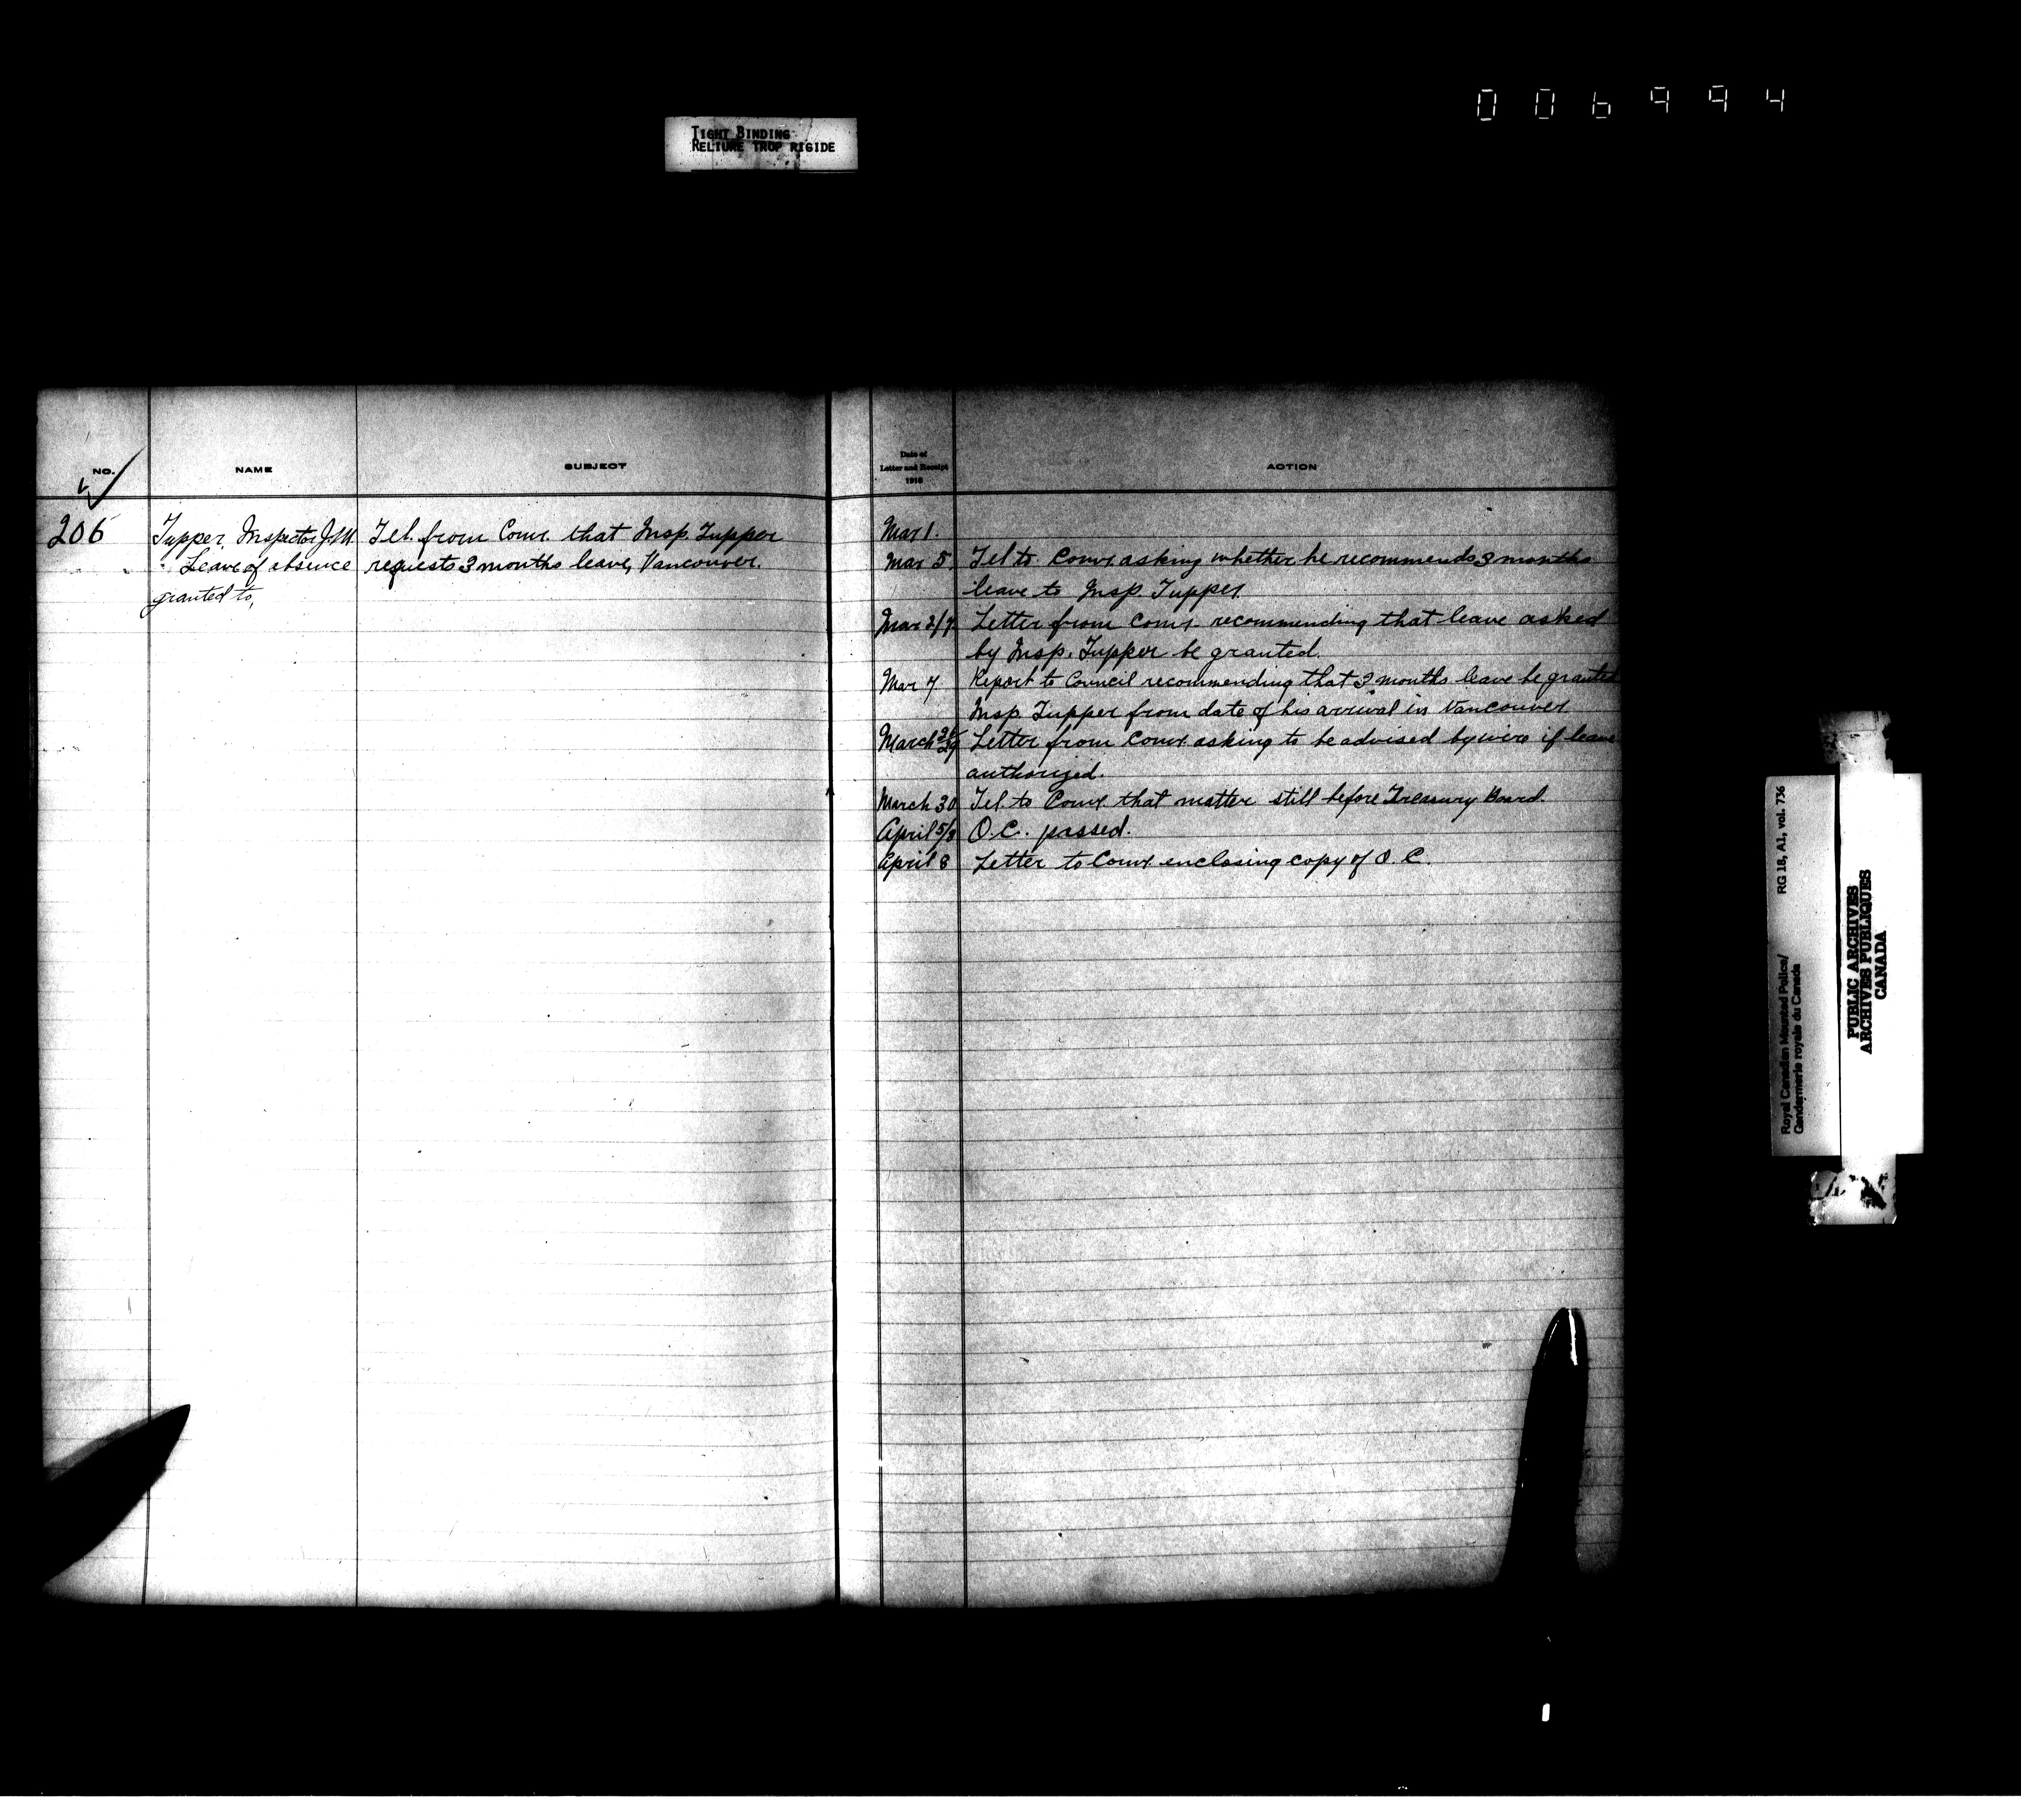 006994
TIGHT BINDING
RELIURE TROP RIGIDE
NO.
NAME
SUBJECT
Date of
Letter and Receipt
1916
ACTION
206
Tupper, Inspector J.M.
Leave of absence
granted to,
Tel. from Comr. that Insp. Tupper
requests 3 months leave, Vancouver.
Mar 1.
Mar 5. Tel to Comr. asking whether he recommends 3 months
leave to Insp. Tupper
Mar 2/7. Letter from Comr. recommending that leave asked
by Insp. Tupper be granted.
Mar 7. Report to Council recommending that 3 months leave be granted
Insp. Tupper from date of his arrival in Vancouver
March 26/29 Letter from Comr. asking to be advised by wire if leave
authorized.
March 30 Tel. to Comr. that matter still before Treasury Board.
April 5/8 O.C. passed.
April 8 Letter to Comr. enclosing copy of O.C.
Royal Canadian Mounted Police/ RG 18, A1, vol. 736
Gendarmerie royale du Canada
PUBLIC ARCHIVES
ARCHIVES PUBLIQUES
CANADA